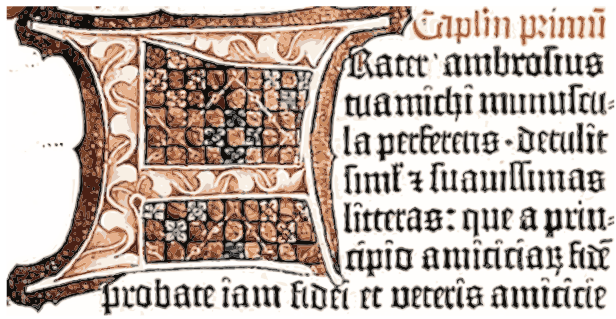 Caplm primū
FRater ambrosius
tua michi munuscu-
la perferens · detulit
siml' ⁊ suauissimas
litteras: que a prin-
cipio amiciciaꝝ fidē
probate iam fidei et veteris amicicie